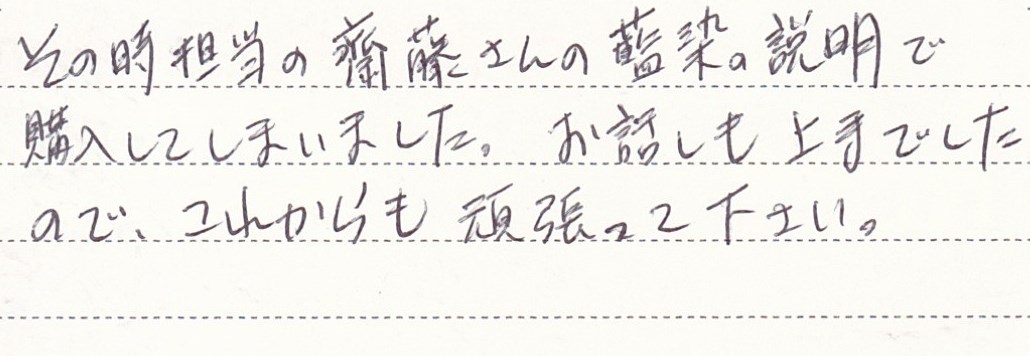 その時担当の齋藤さんの藍染の説明で
購入してしまいました。お話しも上手でした
ので、これからも頑張って下さい。